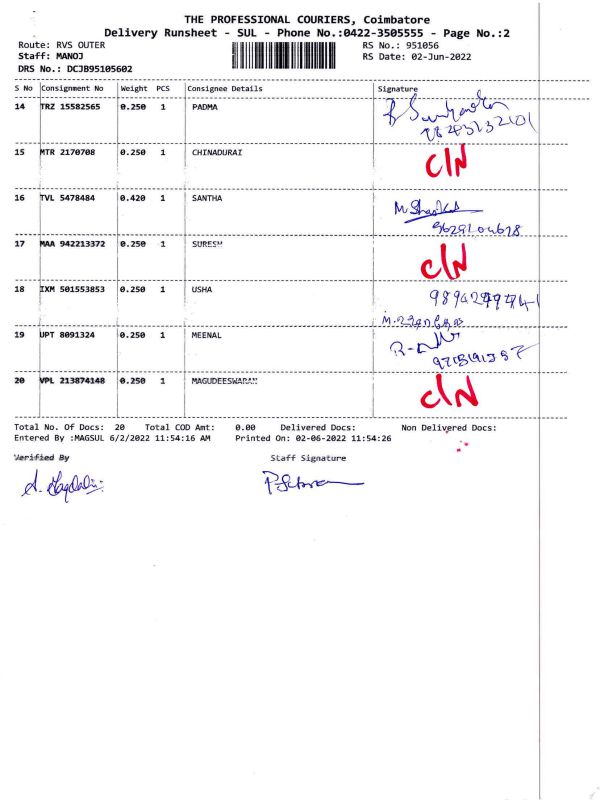 THE PROFESSIONAL COURIERS, Coimbatore
Delivery Runsheet - SUL - Phone No.:0422-3505555 - Page No.:2
Route: RVS OUTER RS No.: 951056
Staff: MANOJ RS Date: 02-Jun-2022
DRS No.: DCJB95105602
S No Consignment No Weight PCS Consignee Details Signature
14 TRZ 15582565 0.250 1 PADMA
15 MTR 2170708 0.250 1 CHINADURAI C/N
16 TVL 5478484 0.420 1 SANTHA
9629104678
17 MAA 942213372 0.250 1 SURESH C/N
18 IXM 501553853 0.250 1 USHA
19 UPT 8091324 0.250 1 MEENAL
20 VPL 213874148 0.250 1 MAGUDEESWARAN C/N
Total No. Of Docs: 20 Total COD Amt: 0.00 Delivered Docs: Non Delivered Docs:
Entered By :MAGSUL 6/2/2022 11:54:16 AM Printed On: 02-06-2022 11:54:26
Verified By Staff Signature